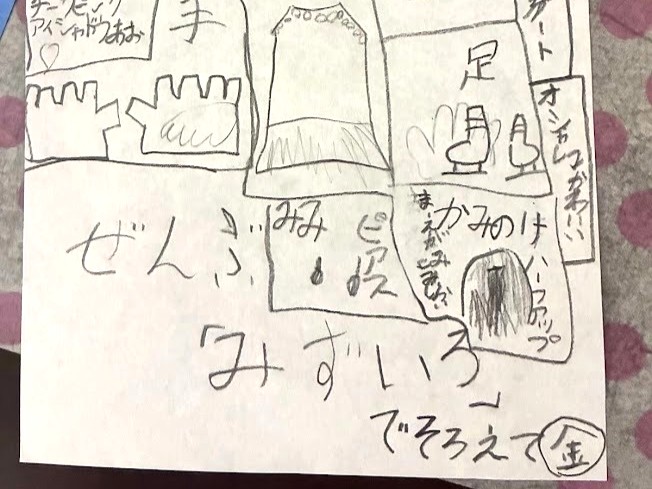 チークピンク
アイシャドウあお
手
足
オシャレでかわいい
みみ
ピアス
かみのけ
ハーフアップ
ぜんぶ
「みずいろ」
でそろえて
金